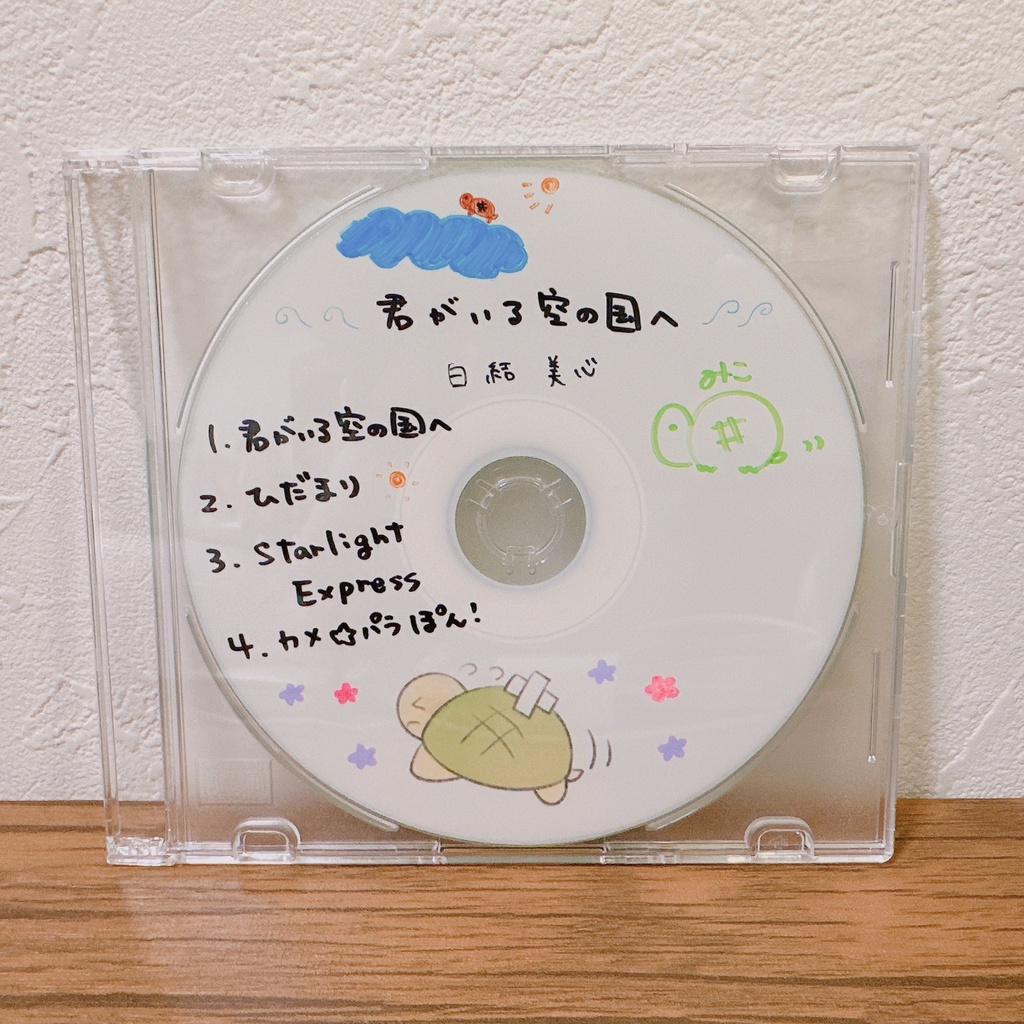 君がいる空の国へ
白結 美心
みこ
1. 君がいる空の国へ
2. ひだまり
3. Starlight
Express
4. カメ☆パラぽん!